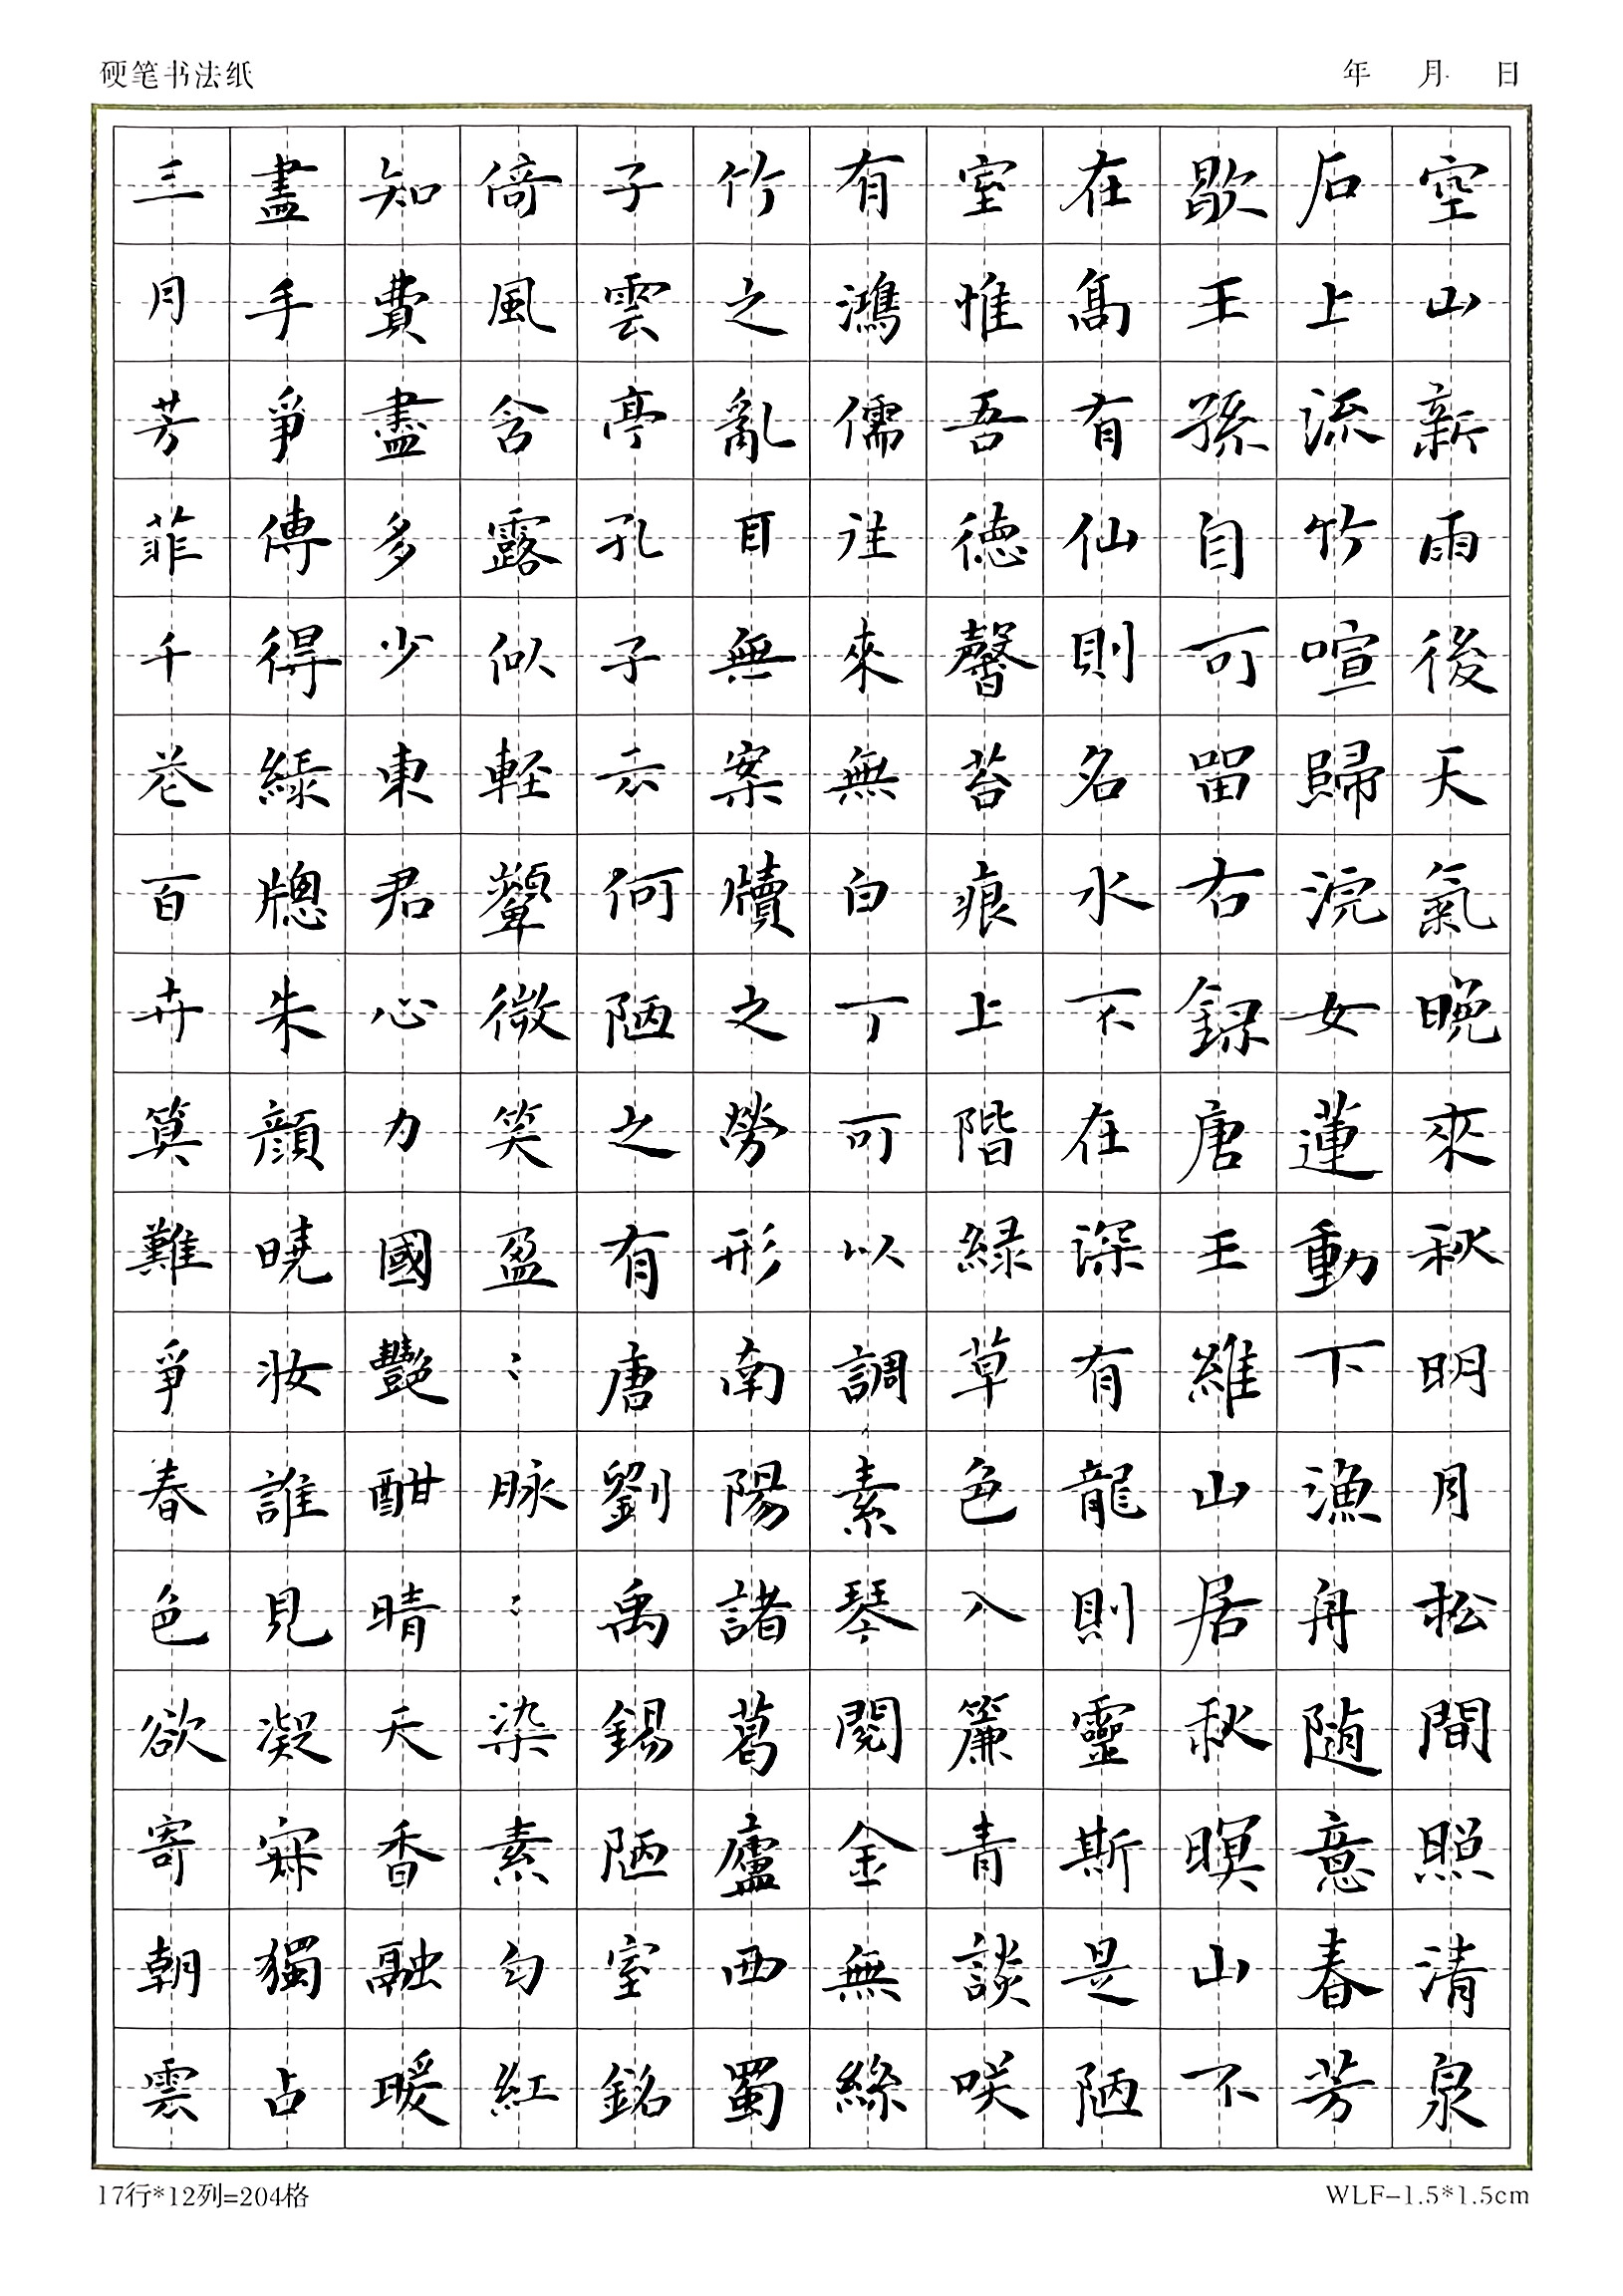 硬笔书法纸
年 月 日
空山新雨後天氣晚來秋明月松間照清泉
石上流竹喧歸浣女蓮動下漁舟随意春芳
歇王孫自可留右録唐王維山居秋暝山不
在髙有仙則名水不在深有龍則靈斯是陋
室惟吾德馨苔痕上階緑草色入簾青談咲
有鴻儒往來無白丁可以調素琴閱金無絲
竹之亂耳無案牘之勞形南陽諸葛廬西蜀
子雲亭孔子云何陋之有唐劉禹錫陋室銘
倚風含露似輕顰微笑盈〻脉〻染素勻紅
知費盡多少東君心力國艷酣晴天香融暖
盡手爭傳得緑牕朱顔曉妝誰見凝寂獨占
三月芳菲千花百卉算難爭春色欲寄朝雲
17行*12列=204格
WLF-1.5*1.5cm